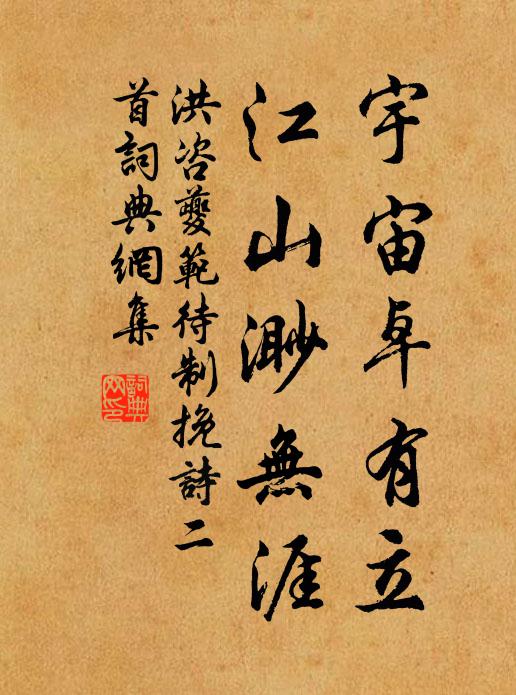 宇宙卓有立
江山渺無涯
洪咨夔範待制挽詩二
首詞典網集
詞典
网印